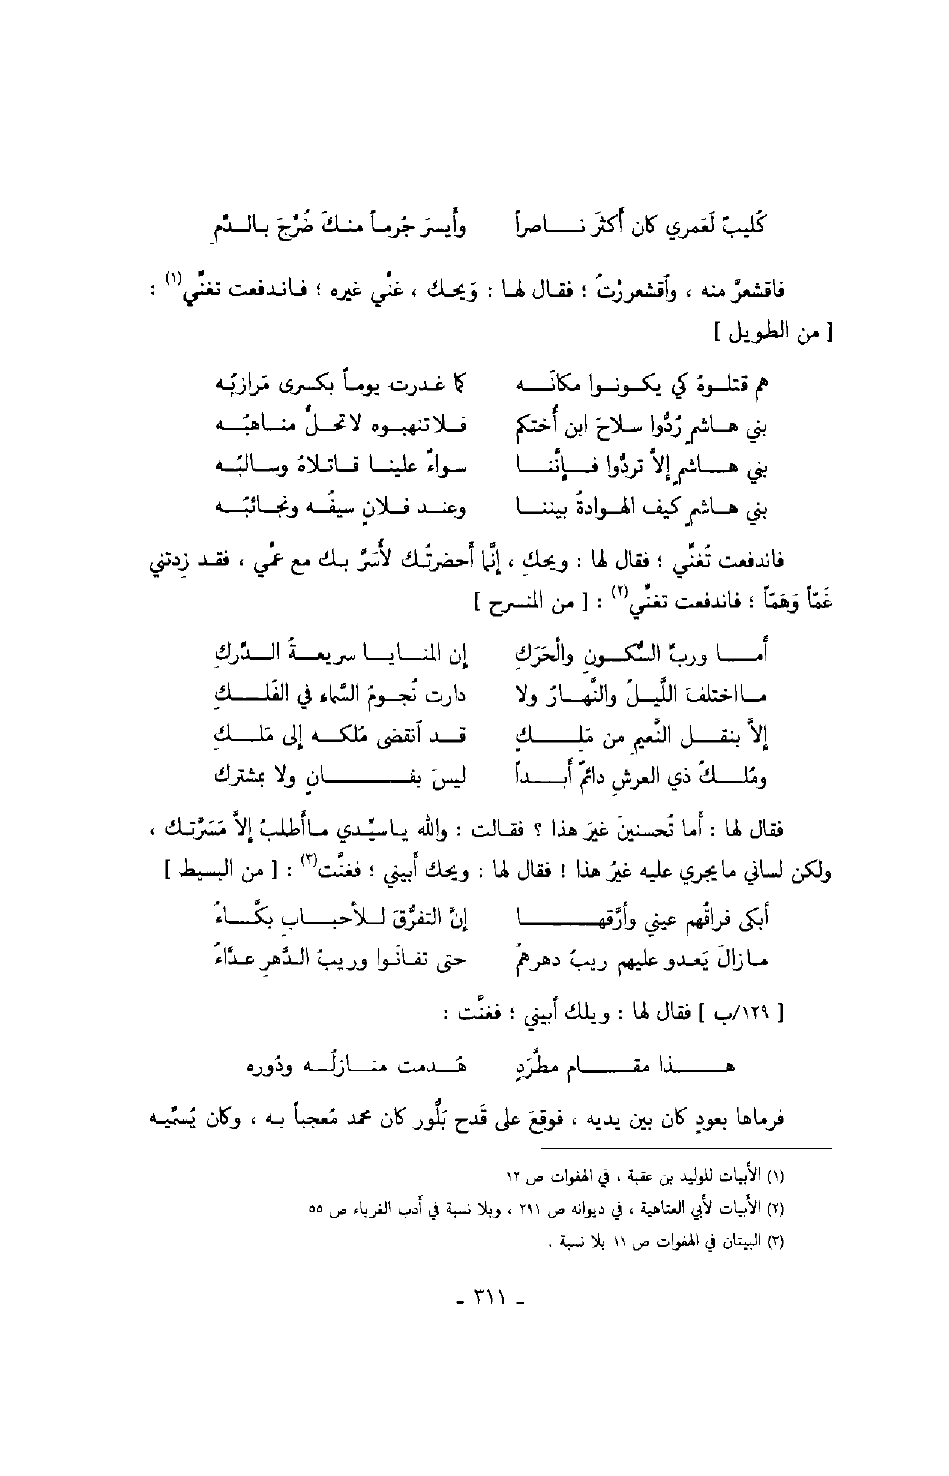 كُليبٌ لَعَمري كان أكثرَ نـاصراً وأيسرَ جُرمـاً منـكَ ضُرِّجَ بـالـدَّمِ
فاقشعرَّ منه ، وأقشعررْتُ ؛ فقـال لهـا : وَيحـك ، غنِّي غيره ؛ فـانـدفعت تغنِّي(١) :
[ من الطويل ]
هم قتلـوهُ كي يكـونـوا مكانَـه كما غـدرت يومـاً بكسرى مَرازبُـه
بني هـاشمٍ رُدُّوا سـلاحَ ابن أُختكم فـلا تنهبـوه لا تحـلُّ منـاهبُـه
بني هـاشمٍ إلاَّ تردُّوا فـإنَّنـا سـواءٌ علينـا قـاتـلاهُ وسـالبُـه
بني هـاشمٍ كيف الهـوادةُ بيننـا وعنـد فـلانٍ سيفُـه ونجـائبُـه
فاندفعت تُغنِّي ؛ فقال لها : ويحكِ ، إنَّما أحضرتُـك لأُسَرَّ بـك مع غمِّي ، فقـد زدتني
غَمّاً وَهَمّاً ؛ فاندفعت تغنِّي(٢) : [ من المنسرح ]
أمـا وربِّ السُّكـونِ والْحَرَكِ إن المنـايـا سريعـةُ الـدَّركِ
مـا اختلفَ اللَّيـلُ والنَّهـارُ ولا دارت نُجـومُ السَّماء في الفَلـكِ
إلاَّ بنقـل النَّعيمِ من مَلِـكٍ قـد آنقضى مُلكـه إلى مَلِـكِ
ومُلـكُ ذي العرشِ دائمٌ أبـداً ليسَ بفـانٍ ولا بمشتركِ
فقال لها : أما تُحسنينَ غيرَ هذا ؟ فقـالت : والله يـاسيِّدي مـاأطلبُ إلاَّ مَسَرَّتـك ،
ولكن لساني ما يجري عليه غيرُ هذا ! فقال لها : ويحك أبيني ؛ فغنَّت(٣) : [ من البسيط ]
أبكى فراقُهم عيني وأرَّقهـا إنَّ التفرُّقَ لـلأحبـابِ بكَّـاءُ
مـازالَ يَعـدو عليهم ريبُ دهرهمُ حتى تفـانَوا وريبُ الـدَّهرِ عـدَّاءُ
[ ١٢٩/ب ] فقال لها : ويلك أبيني ؛ فغنَّت :
هـذا مقـام مطرَّدٍ هُـدمت منـازلُـه ودُوره
فرماها بعودٍ كان بين يديه ، فوقعَ على قَدح بَلُّور كان محمد مُعجباً بـه ، وكان يُسَمِّيـه
(١) الأبيات للوليد بن عقبة ، في الهفوات ص ١٢
(٢) الأبيات لأبي العتاهية ، في ديوانه ص ٢٩١ ، وبلا نسبة في أدب الغرباء ص ٥٥
(٣) البيتان في الهفوات ص ١١ بلا نسبة .
- ٣١١ -